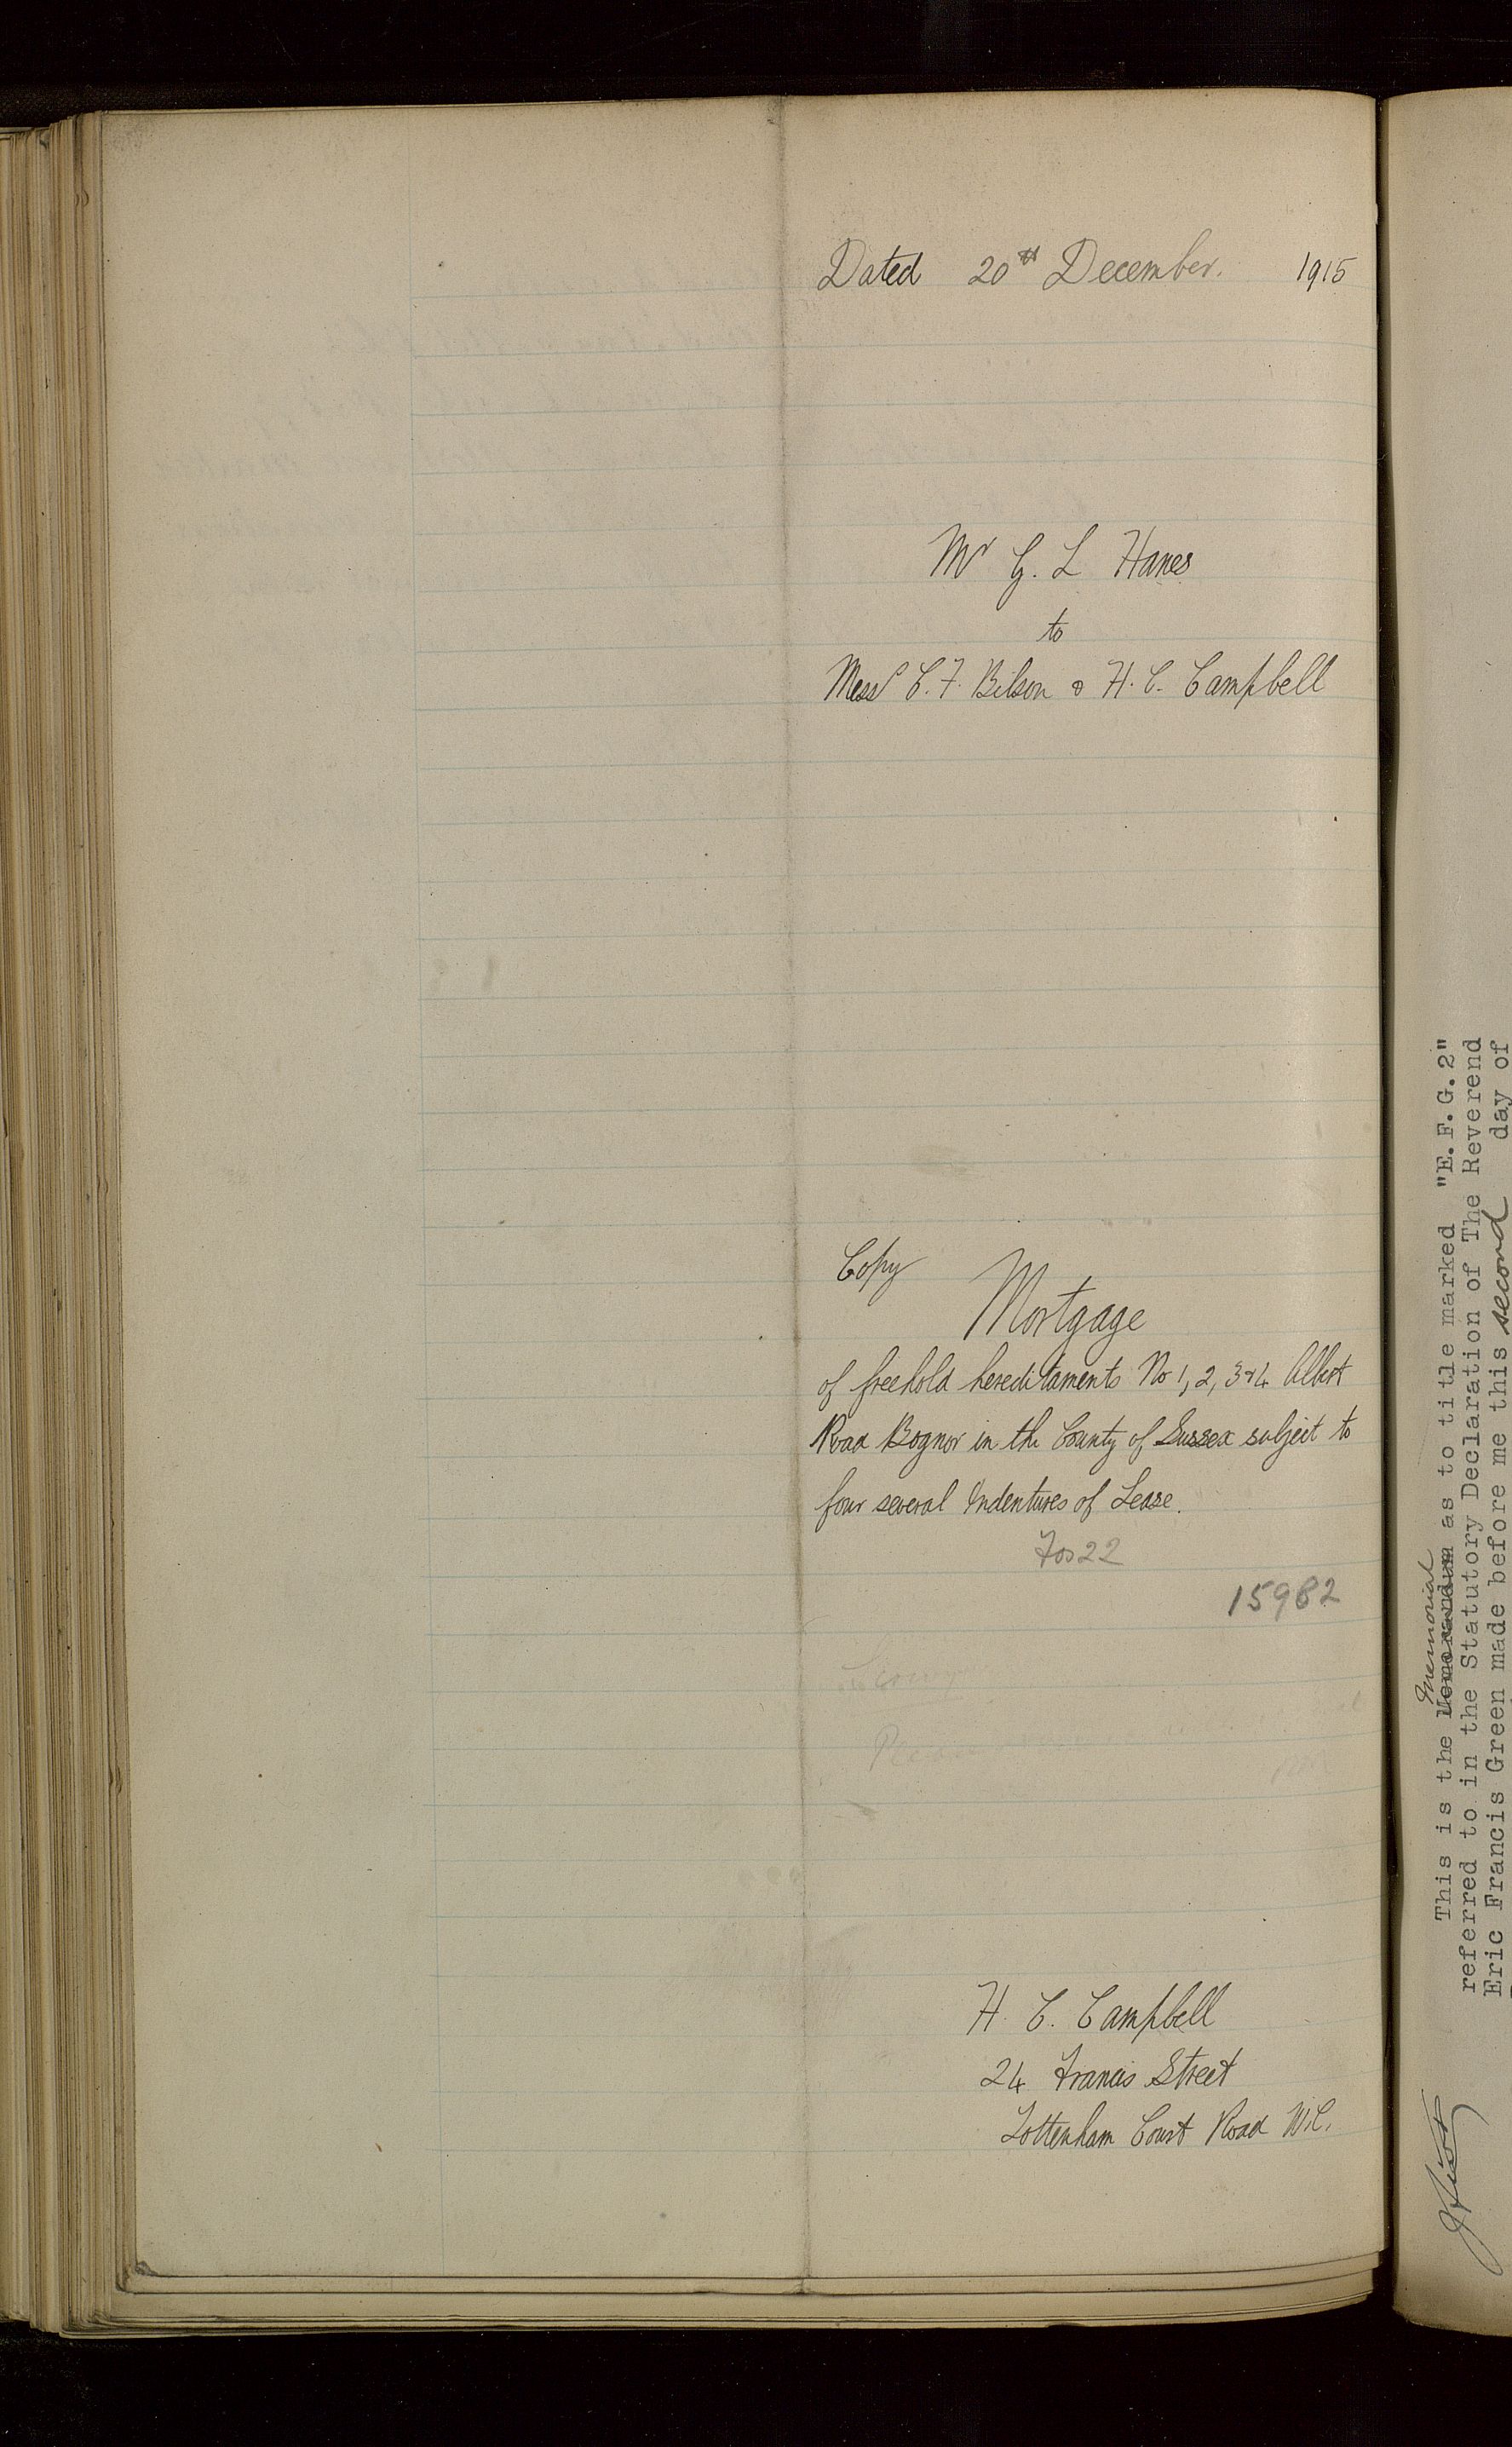 Dated 20th December. 1915
Mr G. L Hanes
to
Messrs C. F. Bilson & H. C. Campbell
Copy
Mortgage
of freehold hereditaments No 1, 2, 3 & 4 Albert
Road Bognor in the County of Sussex subject to
four several Indentures of Lease.
Fos 22
15982
H. C. Campbell
24 Francis Street
Tottenham Court Road W.C.
Memorial
This is the Memorandum as to title marked "E.F.G.2"
referred to in the Statutory Declaration of The Reverend
Eric Francis Green made before me this second day of